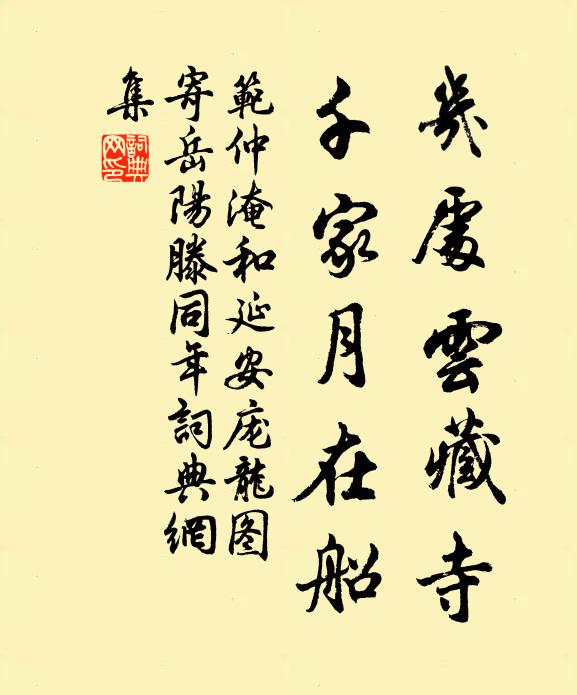 幾處雲藏寺
千家月在船
範仲淹和延安庞龍图
寄岳陽滕同年詞典網
集
詞典网印